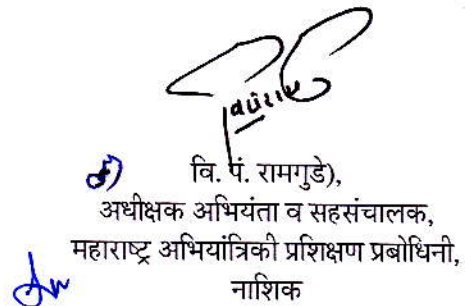 वि. पं. रामगुडे),
अधीक्षक अभियंता व सहसंचालक,
महाराष्ट्र अभियांत्रिकी प्रशिक्षण प्रबोधिनी,
नाशिक